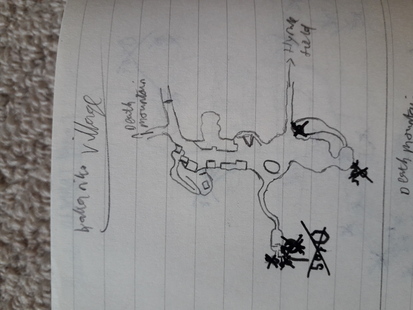 kakariko village
Death
mountain
Hyrule
field
Death mountain